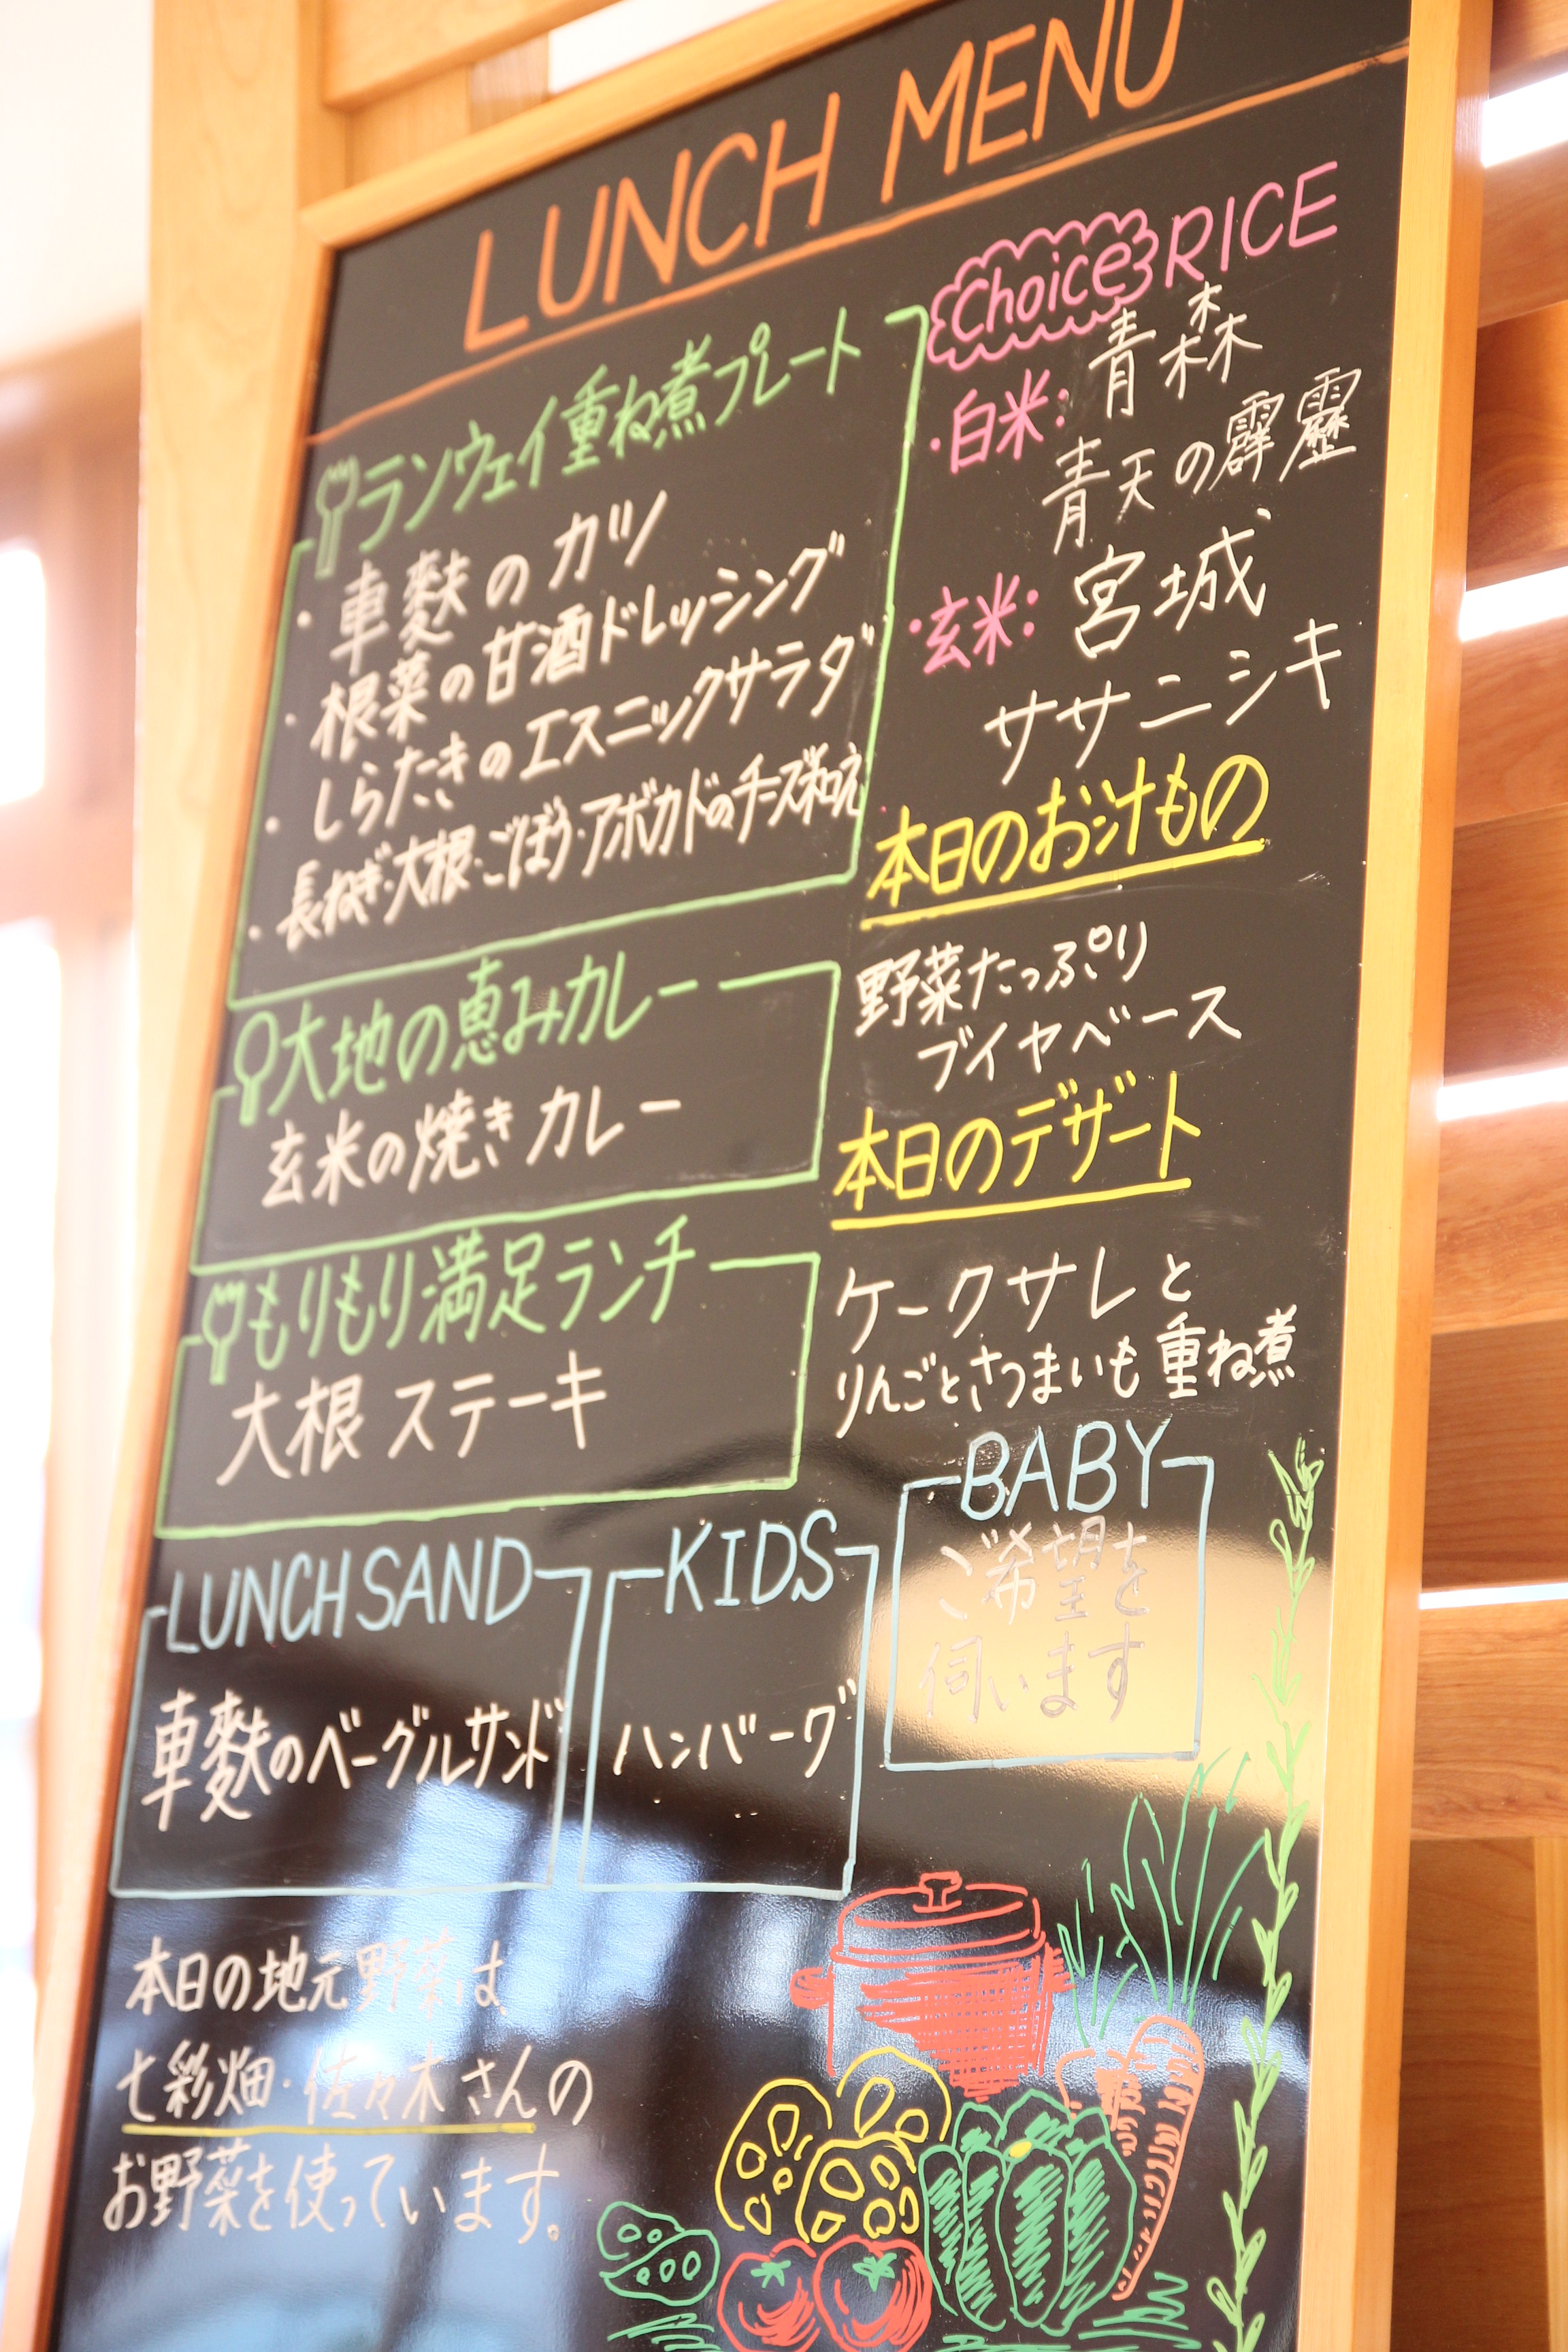 LUNCH MENU
ランウェイ重ね煮プレート
・車麩のカツ
・根菜の甘酒ドレッシング
・しらたきのエスニックサラダ
・長ねぎ・大根・ごぼう・アボカドのチーズ和え
大地の恵みカレー
玄米の焼きカレー
もりもり満足ランチ
大根ステーキ
Choice RICE
・白米：青森
青天の霹靂
・玄米：宮城
ササニシキ
本日のお汁もの
野菜たっぷり
ブイヤベース
本日のデザート
ケークサレと
りんごとさつまいも重ね煮
LUNCH SAND
車麩のベーグルサンド
KIDS
ハンバーグ
BABY
ご希望を
伺います
本日の地元野菜は
七彩畑・佐々木さんの
お野菜を使っています。